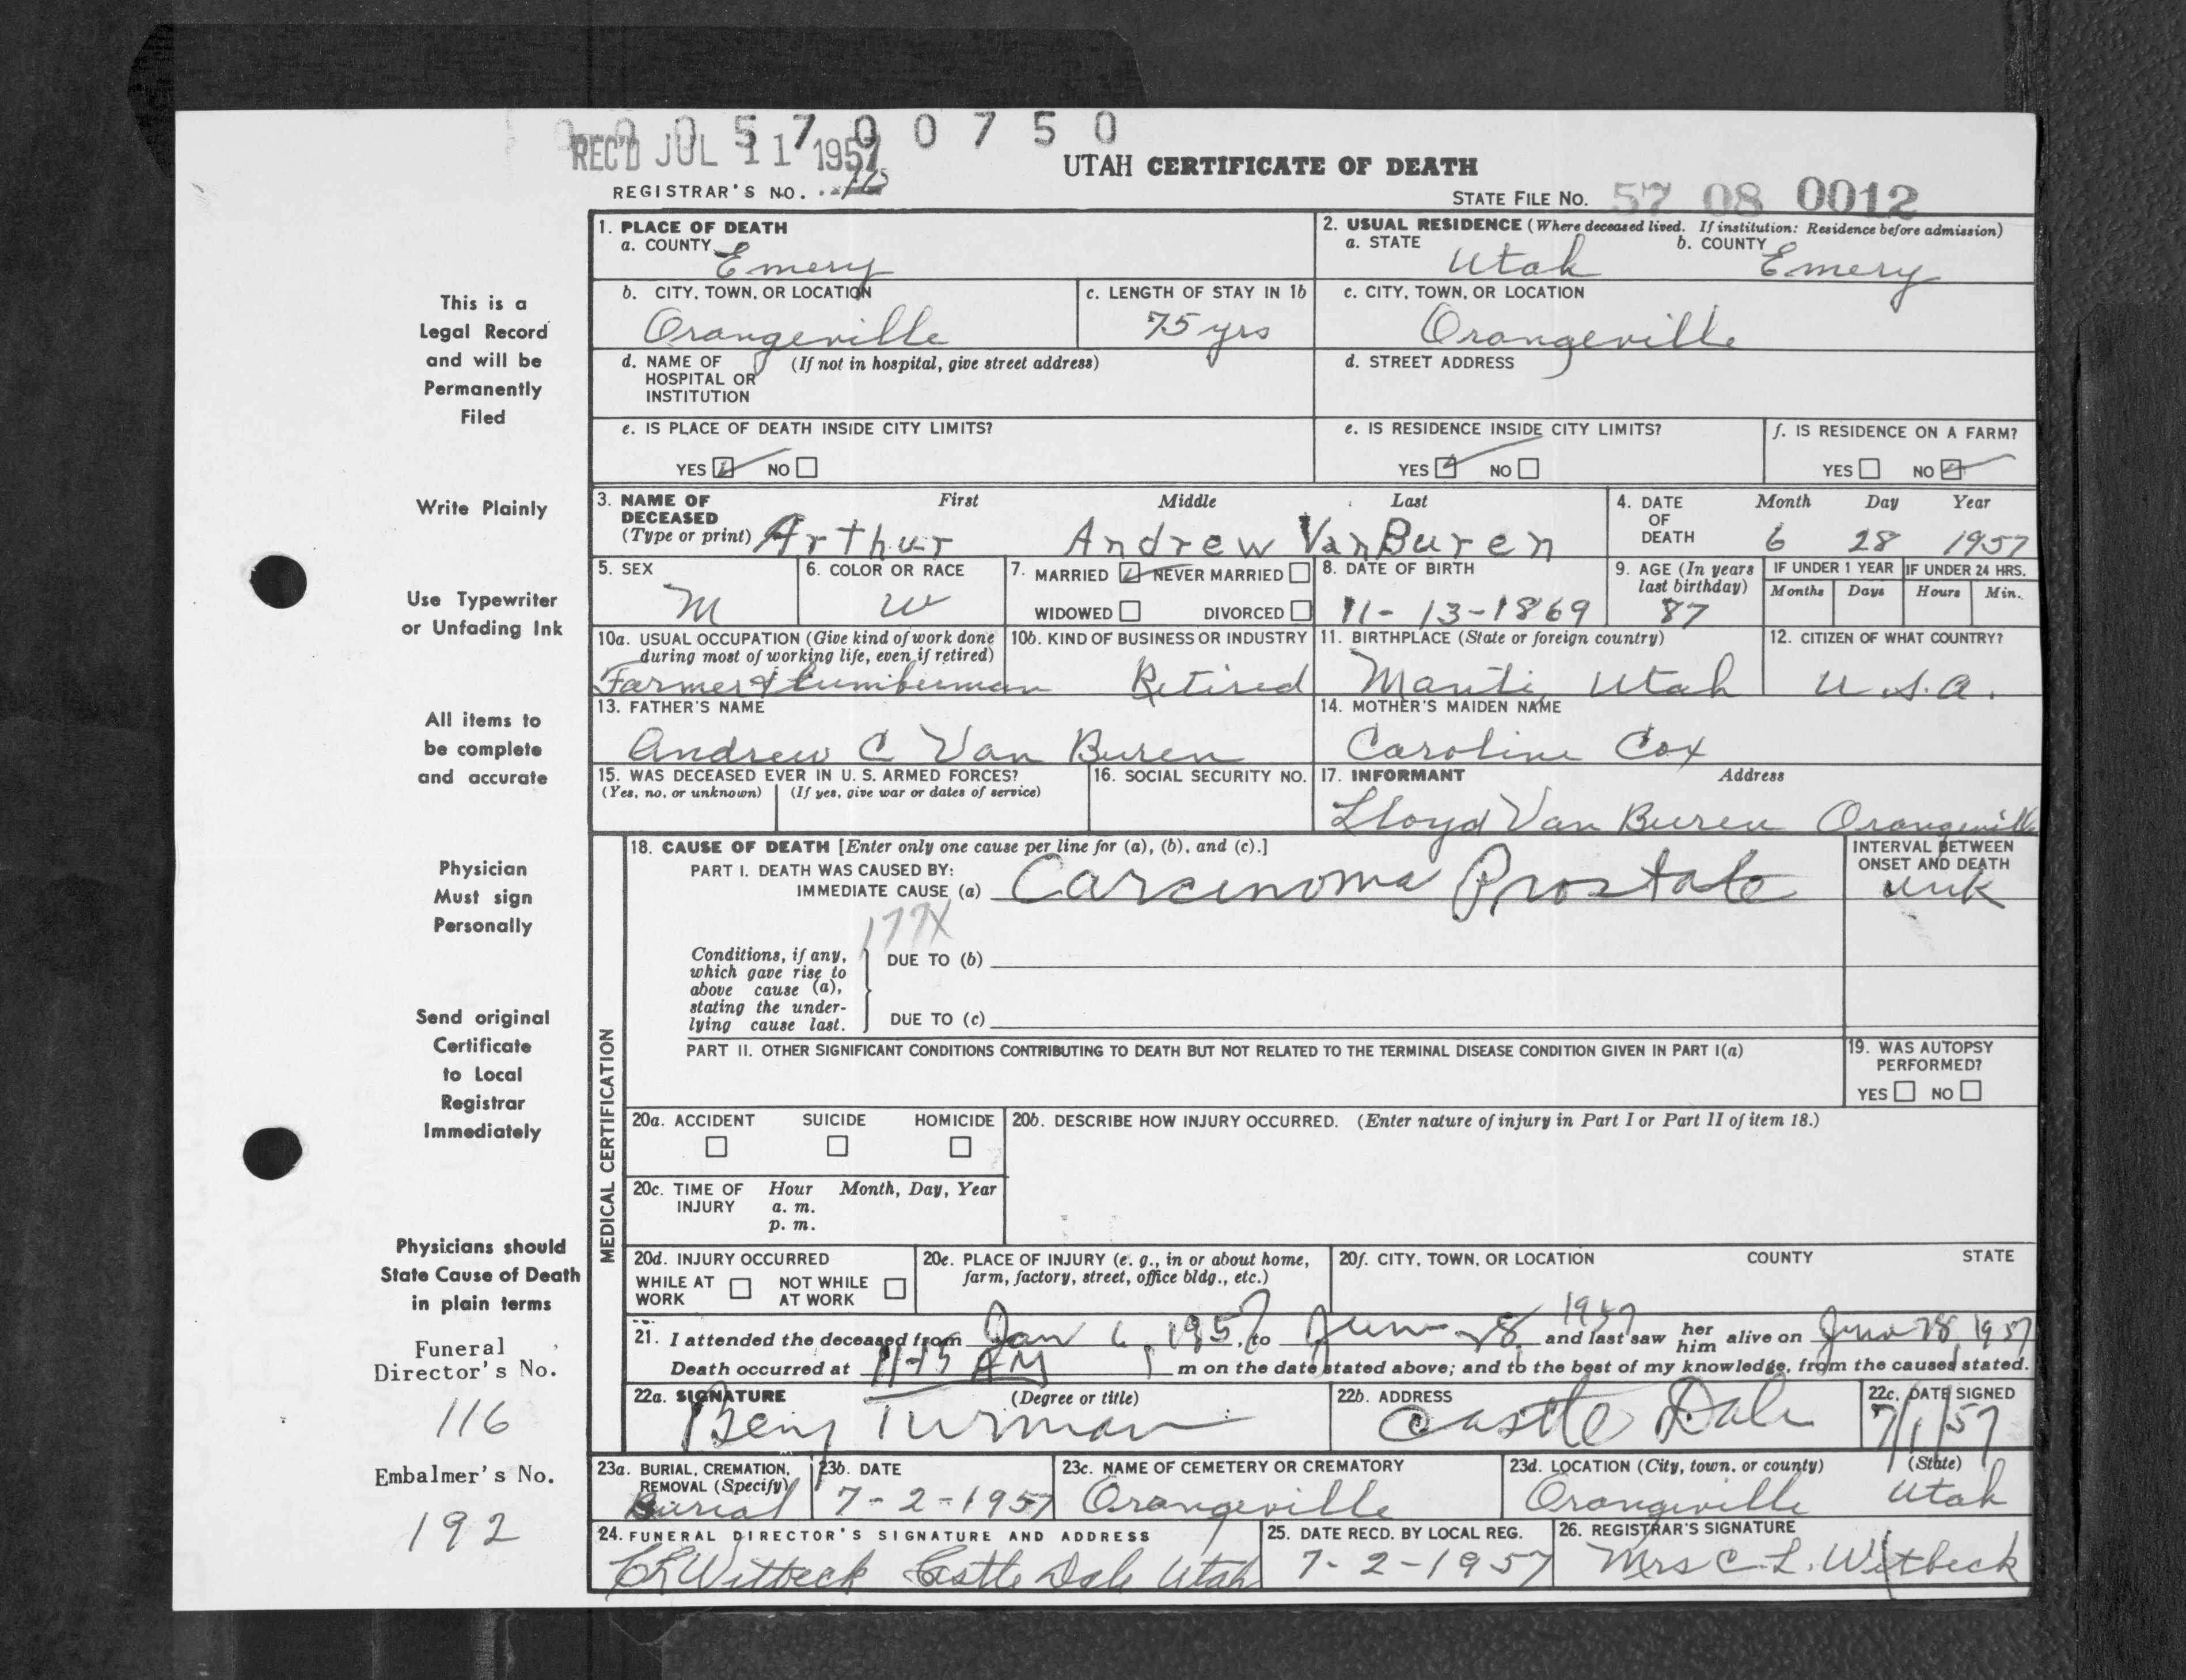 0 0 0 5 7 0 0 7 5 0
REC'D JUL 11 1957
UTAH CERTIFICATE OF DEATH
REGISTRAR'S NO.
STATE FILE NO. 57 08 0012
This is a
Legal Record
and will be
Permanently
Filed
Write Plainly
Use Typewriter
or Unfading Ink
All items to
be complete
and accurate
Physician
Must sign
Personally
Send original
Certificate
to Local
Registrar
Immediately
Physicians should
State Cause of Death
in plain terms
Funeral
Director's No.
116
Embalmer's No.
192
1. PLACE OF DEATH
a. COUNTY Emery
2. USUAL RESIDENCE (Where deceased lived. If institution: Residence before admission)
a. STATE Utah b. COUNTY Emery
b. CITY, TOWN, OR LOCATION
Orangeville
c. LENGTH OF STAY IN 1b
75 yrs
c. CITY, TOWN, OR LOCATION
Orangeville
d. NAME OF (If not in hospital, give street address)
HOSPITAL OR
INSTITUTION
d. STREET ADDRESS
e. IS PLACE OF DEATH INSIDE CITY LIMITS?
YES NO
e. IS RESIDENCE INSIDE CITY LIMITS?
YES NO
f. IS RESIDENCE ON A FARM?
YES NO
3. NAME OF First Middle Last
DECEASED
(Type or print) Arthur Andrew VanBuren
4. DATE Month Day Year
OF
DEATH 6 28 1957
5. SEX
M
6. COLOR OR RACE
W
7. MARRIED NEVER MARRIED
WIDOWED DIVORCED
8. DATE OF BIRTH
11-13-1869
9. AGE (In years
last birthday)
87
IF UNDER 1 YEAR
Months Days
IF UNDER 24 HRS.
Hours Min.
10a. USUAL OCCUPATION (Give kind of work done
during most of working life, even if retired)
Farmer & Lumberman
10b. KIND OF BUSINESS OR INDUSTRY
Retired
11. BIRTHPLACE (State or foreign country)
Manti, Utah
12. CITIZEN OF WHAT COUNTRY?
U.S.A.
13. FATHER'S NAME
Andrew C Van Buren
14. MOTHER'S MAIDEN NAME
Caroline Cox
15. WAS DECEASED EVER IN U. S. ARMED FORCES?
(Yes, no, or unknown) (If yes, give war or dates of service)
16. SOCIAL SECURITY NO.
17. INFORMANT Address
Lloyd Van Buren Orangeville
MEDICAL CERTIFICATION
18. CAUSE OF DEATH [Enter only one cause per line for (a), (b), and (c).]
PART I. DEATH WAS CAUSED BY:
IMMEDIATE CAUSE (a) Carcinoma Prostate
INTERVAL BETWEEN
ONSET AND DEATH
unk
177X
Conditions, if any,
which gave rise to
above cause (a),
stating the under-
lying cause last.
DUE TO (b)
DUE TO (c)
PART II. OTHER SIGNIFICANT CONDITIONS CONTRIBUTING TO DEATH BUT NOT RELATED TO THE TERMINAL DISEASE CONDITION GIVEN IN PART I(a)
19. WAS AUTOPSY
PERFORMED?
YES NO
20a. ACCIDENT SUICIDE HOMICIDE
20b. DESCRIBE HOW INJURY OCCURRED. (Enter nature of injury in Part I or Part II of item 18.)
20c. TIME OF Hour Month, Day, Year
INJURY a. m.
p. m.
20d. INJURY OCCURRED
WHILE AT NOT WHILE
WORK AT WORK
20e. PLACE OF INJURY (e. g., in or about home,
farm, factory, street, office bldg., etc.)
20f. CITY, TOWN, OR LOCATION COUNTY STATE
21. I attended the deceased from Jan 6, 1957, to June 28 1957 and last saw her him alive on June 28 1957
Death occurred at 11-15 AM m on the date stated above; and to the best of my knowledge, from the causes stated.
22a. SIGNATURE (Degree or title)
Benj Turman
22b. ADDRESS
Castle Dale
22c. DATE SIGNED
7/1/57
23a. BURIAL, CREMATION,
REMOVAL (Specify)
Burial
23b. DATE
7-2-1957
23c. NAME OF CEMETERY OR CREMATORY
Orangeville
23d. LOCATION (City, town, or county) (State)
Orangeville Utah
24. FUNERAL DIRECTOR'S SIGNATURE AND ADDRESS
CL Witbeck Castle Dale Utah
25. DATE RECD. BY LOCAL REG.
7-2-1957
26. REGISTRAR'S SIGNATURE
Mrs C. L. Witbeck